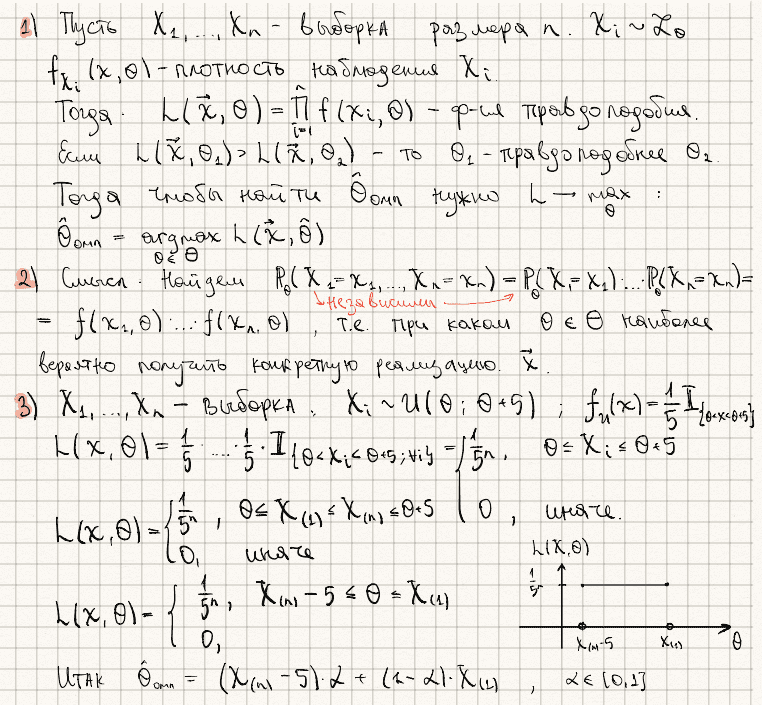 1) Пусть X₁,...,Xₙ - выборка размера n. Xᵢ ~ ℒ_θ
f_{Xᵢ}(x,θ) - плотность наблюдения Xᵢ.
Тогда. L(x⃗,θ) = ∏_{i=1}^{n} f(xᵢ,θ) - ф-ия правдоподобия.
Если L(x⃗,θ₁) > L(x⃗,θ₂) - то θ₁ - правдоподобнее θ₂.
Тогда чтобы найти θ̂_{омп} нужно L → max_θ :
θ̂_{омп} = argmax_{θ∈Θ} L(x⃗,θ̂)
2) Смысл. Найдем P_θ(X₁=x₁,...,Xₙ=xₙ) = P_θ(X₁=x₁)·...·P_θ(Xₙ=xₙ)=
↳ независимы →
= f(x₁,θ)·...·f(xₙ,θ), т.е. при каком θ ∈ Θ наиболее
вероятно получить конкретную реализацию. x⃗.
3) X₁,...,Xₙ - выборка. Xᵢ ~ U(θ; θ+5) ; f_u(x) = 1/5 I_{{θ<x<θ+5}}
L(x,θ) = 1/5·...·1/5·I_{{θ<xᵢ<θ+5; ∀i}} = { 1/5ⁿ, θ ≤ Xᵢ ≤ θ+5
0, иначе.
L(x,θ) = { 1/5ⁿ, θ ≤ X₍₁₎ ≤ X₍ₙ₎ ≤ θ+5
0, иначе
L(x,θ) = { 1/5ⁿ, X₍ₙ₎ - 5 ≤ θ ≤ X₍₁₎
0,
L(X,θ)
1/5ⁿ
X₍ₙ₎-5 X₍₁₎ θ
Итак θ̂_{омп} = (X₍ₙ₎ - 5)·α + (1-α)·X₍₁₎, α ∈ [0,1]